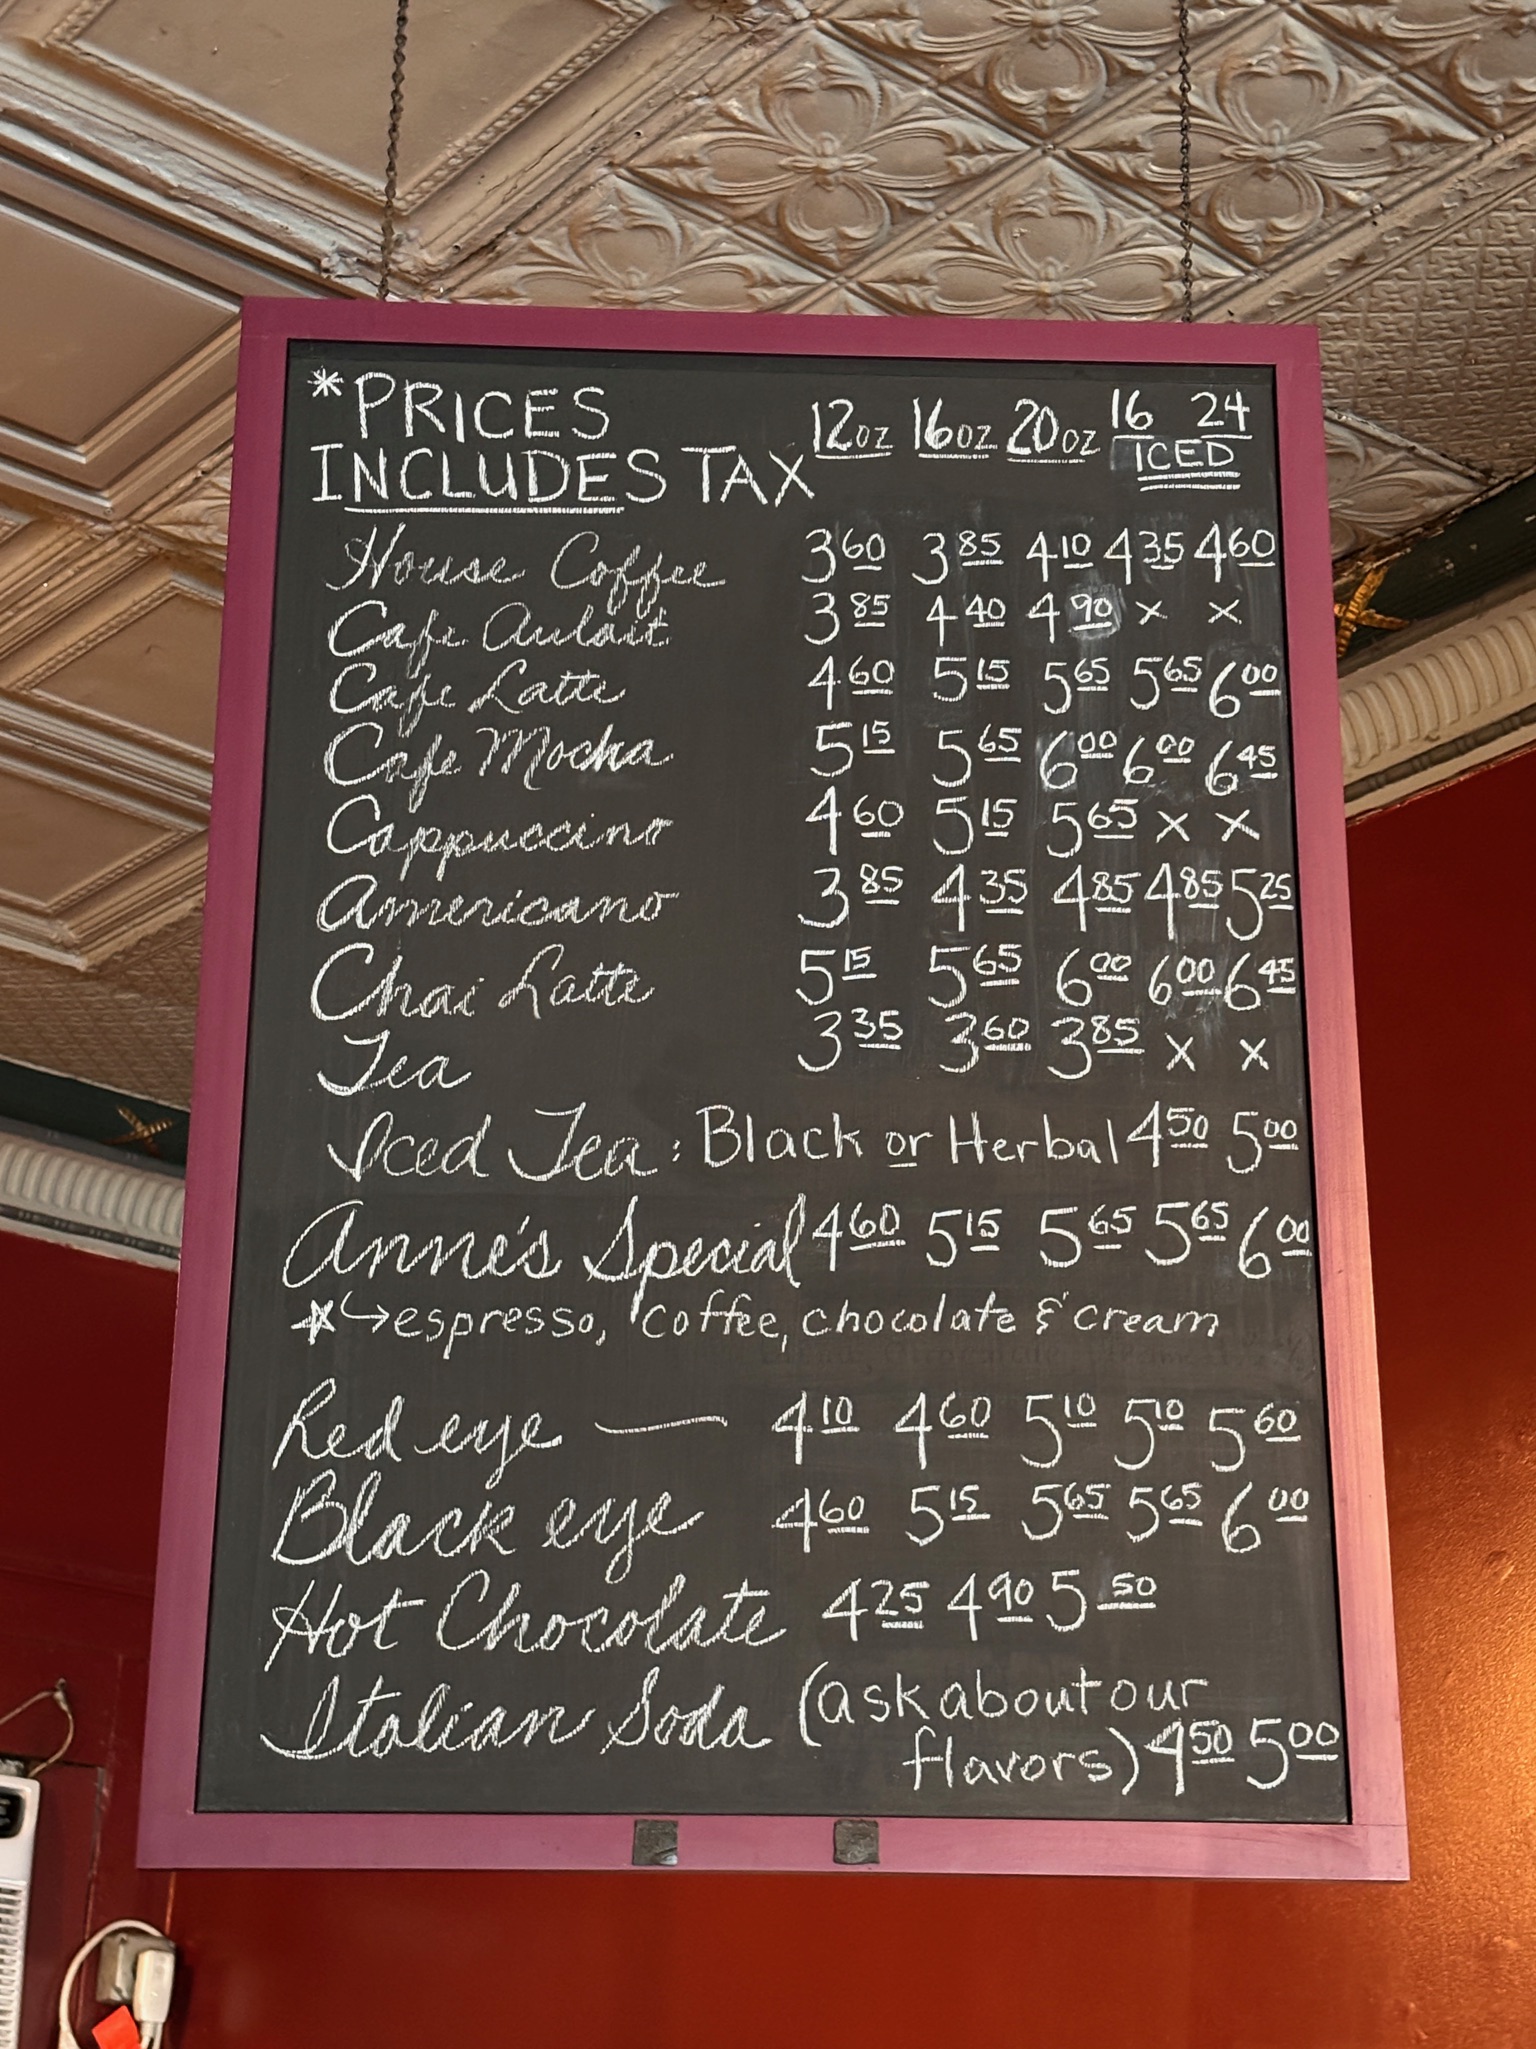 *PRICES
INCLUDES TAX 12oz 16oz 20oz 16 24
ICED
House Coffee 3 60 3 85 4 10 4 35 4 60
Cafe Aulait 3 85 4 40 4 90 x x
Cafe Latte 4 60 5 15 5 65 5 65 6 00
Cafe Mocha 5 15 5 65 6 00 6 00 6 45
Cappuccino 4 60 5 15 5 65 x x
Americano 3 85 4 35 4 85 4 85 5 25
Chai Latte 5 15 5 65 6 00 6 00 6 45
Tea 3 35 3 60 3 85 x x
Iced Tea: Black or Herbal 4 50 5 00
Anne's Special 4 60 5 15 5 65 5 65 6 00
espresso, coffee, chocolate & cream
Red eye — 4 10 4 60 5 10 5 10 5 60
Black eye 4 60 5 15 5 65 5 65 6 00
Hot Chocolate 4 25 4 90 5 50
Italian Soda (ask about our
flavors) 4 50 5 00